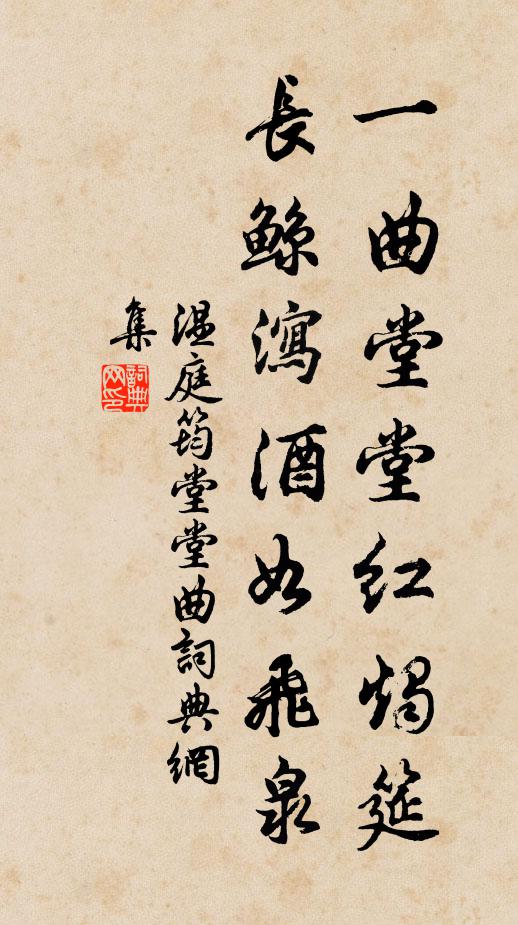 一曲堂堂紅燭筵
長鯨瀉酒如飛泉
溫庭筠堂堂曲詞典網
集
詞典網印